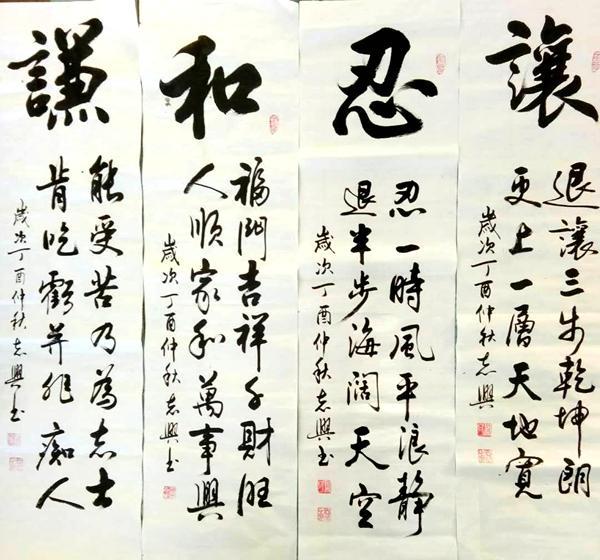 讓
退讓三步乾坤朗
更上一層天地寬
歲次丁酉仲秋志興
忍
忍一時風平浪静
退半步海闊天空
歲次丁酉仲秋志興书
和
福門吉祥財旺
人順家和萬事興
歲次丁酉仲秋志興书
謙
能受苦乃為志士
肯吃虧并非痴人
歲次丁酉仲秋志興书